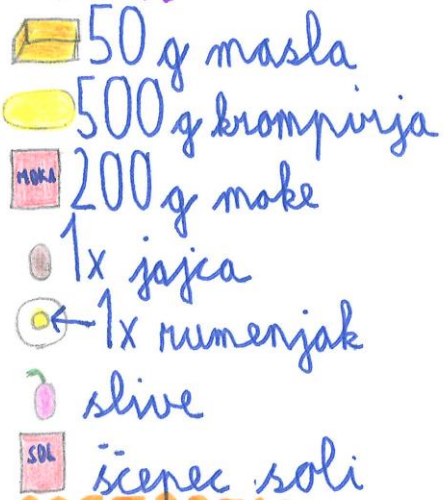 50 g masla
500 g krompirja
MOKA 200 g moke
1x jajca
1x rumenjak
slive
SOL ščepec soli